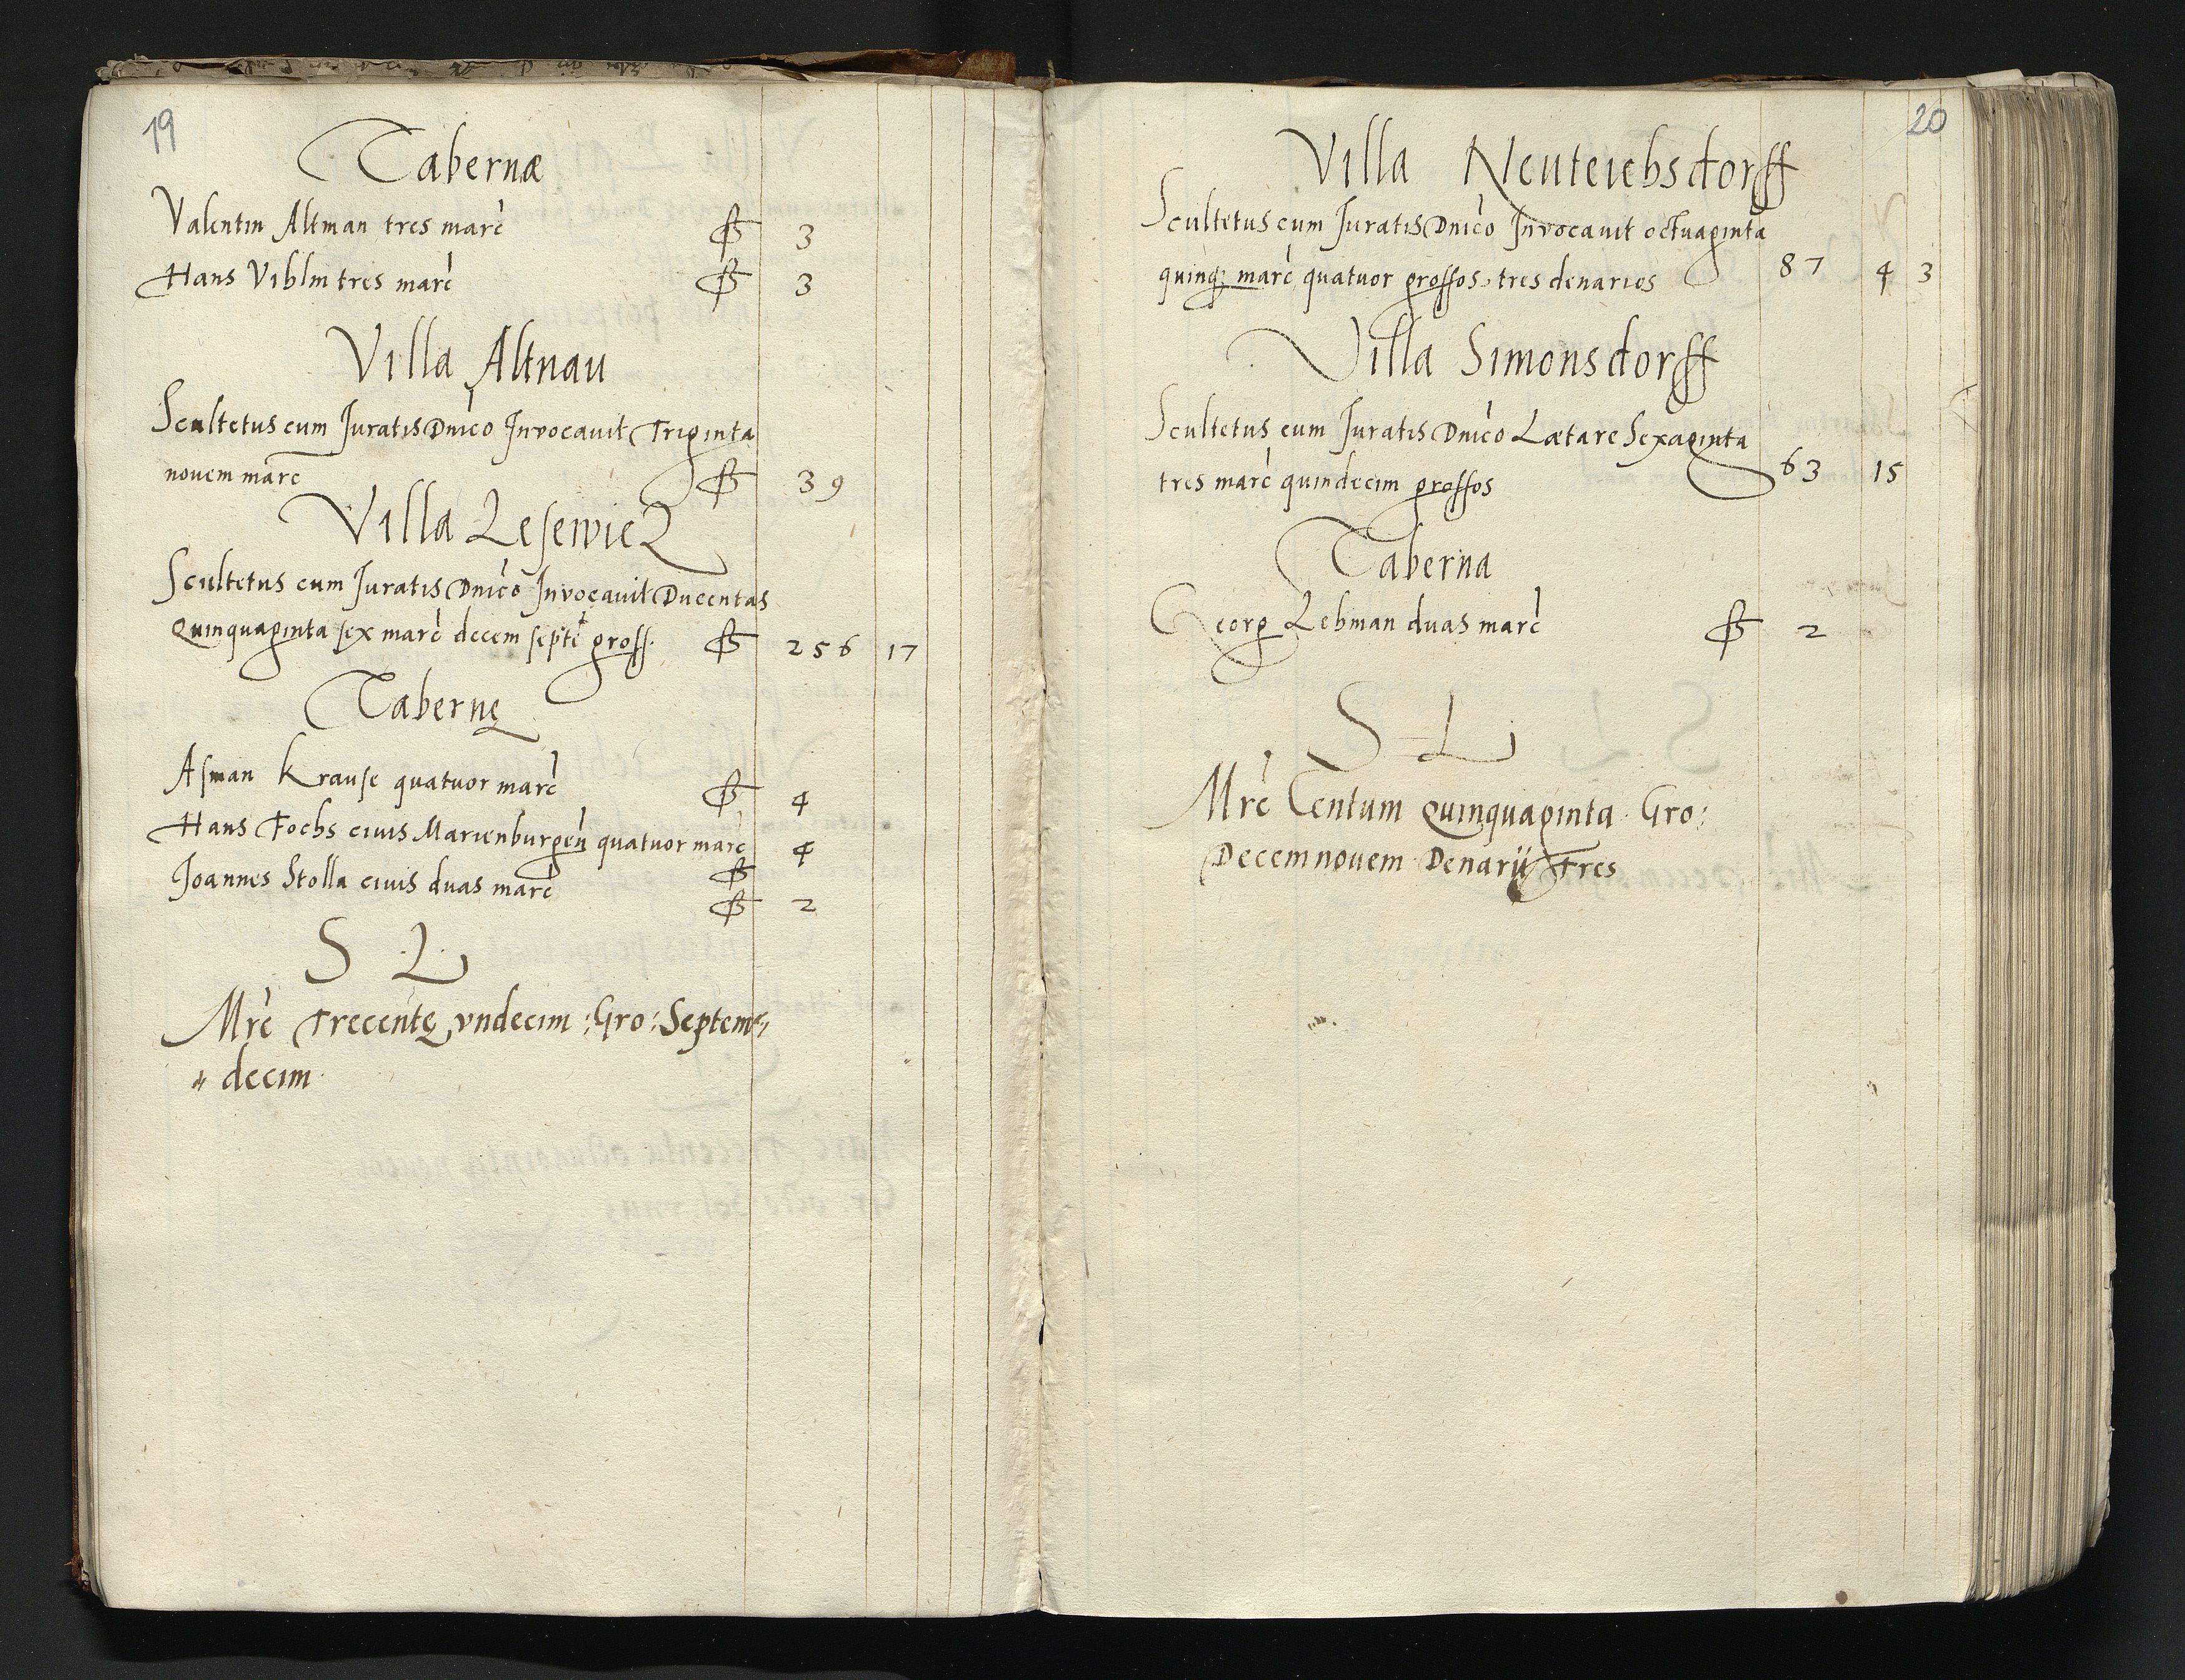 19
Tabernæ
Valentin Altman tres marc 3
Hans Viblm tres marc 3
Villa Altnau
Scultetus cum Juratis Dnico Invocavit Triginta
novem marc 39
Villa Lesewicz
Scultetus cum Juratis Dnico Invocavit Ducentas
Quinquaginta sex marc decem septe gross. 256 17
Tabernę
Asman Krause quatuor marc 4
Hans Fochs civis Marienburgen quatuor marc 4
Joannes Stolla civis duas marc 2
S L
Mrc Trecentę vndecim : Gro : Septem
decim
20
Villa Neuteichsdorff
Scultetus cum Juratis Dnico Invocavit octuaginta
quinq marc quatuor grossos tres denarios 87 4 3
Villa Simonsdorff
Scultetus cum Juratis Dnico Lætare Sexaginta
tres marc quindecim grossos 63 15
Taberna
Georg Lehman duas marc 2
S L
Mrc Centum Quinquaginta Gro :
Decemnovem Denarij Tres